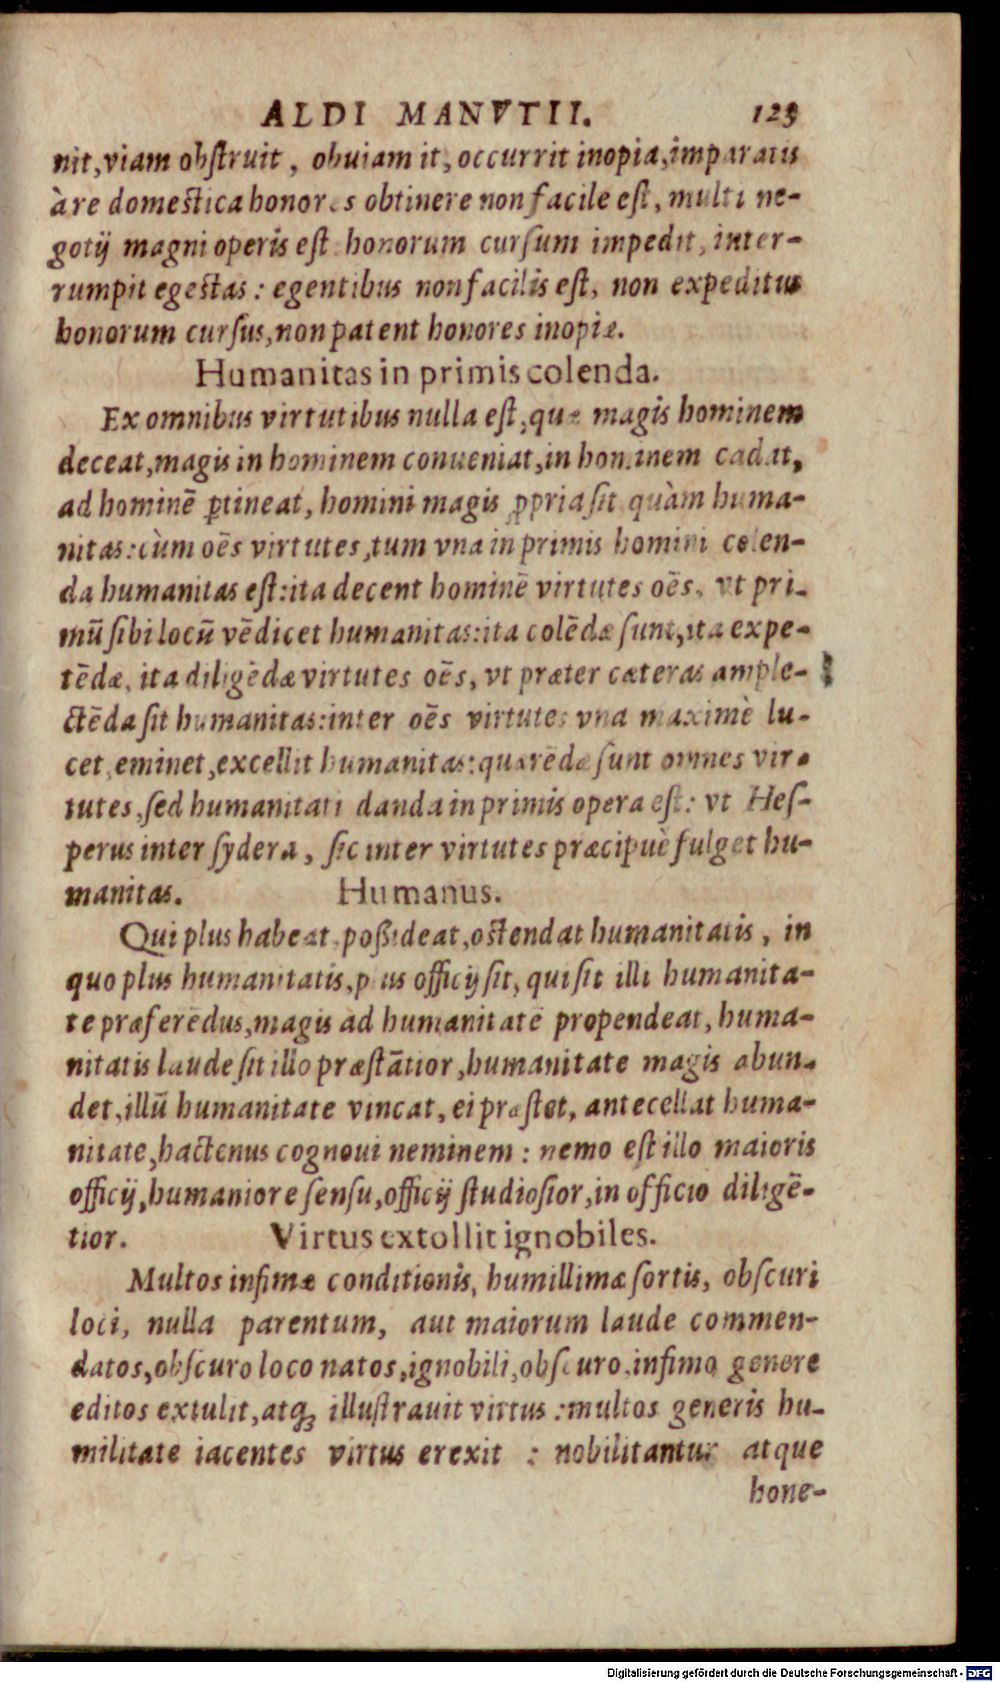 ALDI MANVTII. 123
nit, viam obſtruit, obuiam it, occurrit inopia, imparatis
à re domeſtica honores obtinere non facile eſt, multi ne-
gotij magni operis eſt honorum curſum impedit, inter-
rumpit egeſtas: egentibus non facilis eſt, non expeditus
honorum curſus, non patent honores inopiæ.
Humanitas in primis colenda.
Ex omnibus virtutibus nulla eſt, quæ magis hominem
deceat, magis in hominem conueniat, in hominem cadat,
ad hominē ꝑtineat, homini magis ꝓpria ſit quàm huma-
nitas: cùm oēs virtutes, tum vna in primis homini colen-
da humanitas eſt: ita decent hominē virtutes oēs, vt pri-
mū ſibi locū vēdicet humanitas: ita colēdæ ſunt, ita expe-
tēdæ, ita diligēdæ virtutes oēs, vt præter cæteras ample-
ctēda ſit humanitas: inter oēs virtutes vna maximè lu-
cet, eminet, excellit humanitas: quærēdæ ſunt omnes vir-
tutes, ſed humanitati danda in primis opera eſt: vt Heſ-
perus inter ſydera, ſic inter virtutes præcipuè fulget hu-
manitas. Humanus.
Qui plus habeat, poßideat, oſtendat humanitatis, in
quo plus humanitatis, plus officij ſit, qui ſit illi humanita-
te præferēdus, magis ad humanitatē propendeat, huma-
nitatis laude ſit illo præſtātior, humanitate magis abun-
det, illū humanitate vincat, ei præſtet, antecellat huma-
nitate, hactenus cognoui neminem: nemo eſt illo maioris
officij, humaniore ſenſu, officij ſtudioſior, in officio diligē-
tior. Virtus extollit ignobiles.
Multos infimæ conditionis, humillimæ ſortis, obſcuri
loci, nulla parentum, aut maiorum laude commen-
datos, obſcuro loco natos, ignobili, obſcuro, infimo genere
editos extulit, atqꝫ illuſtrauit virtus: multos generis hu-
militate iacentes virtus erexit : nobilitantur atque
hone-
Digitalisierung gefördert durch die Deutsche Forschungsgemeinschaft - DFG